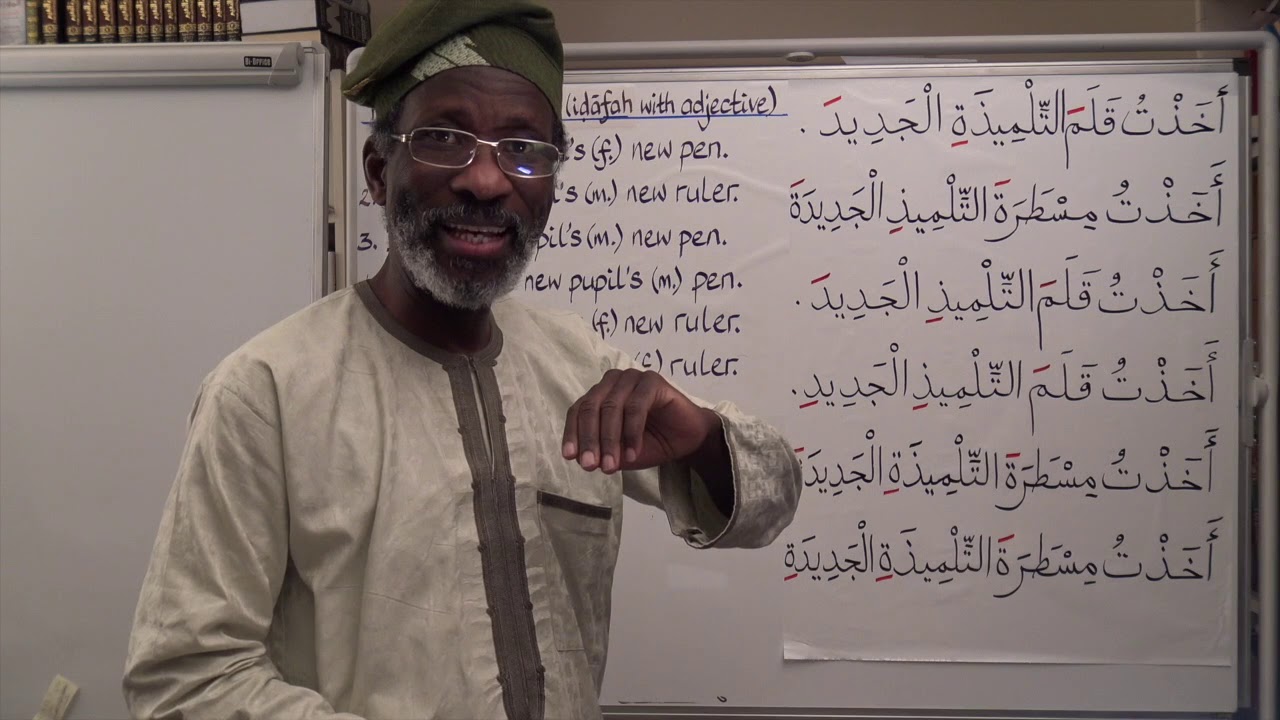 Bi-Office
(iḍāfah with adjective)
's (f.) new pen.
2. 's (m.) new ruler.
3. pil's (m.) new pen.
new pupil's (m.) pen.
(f.) new ruler.
ruler.
أَخَذْتُ قَلَمَ التِّلْمِيذَةِ الْجَدِيدَ .
أَخَذْتُ مِسْطَرَةَ التِّلْمِيذِ الْجَدِيدَةَ
أَخَذْتُ قَلَمَ التِّلْمِيذِ الْجَدِيدَ .
أَخَذْتُ قَلَمَ التِّلْمِيذِ الْجَدِيدِ .
أَخَذْتُ مِسْطَرَةَ التِّلْمِيذَةِ الْجَدِيدَةَ
أَخَذْتُ مِسْطَرَةَ التِّلْمِيذَةِ الْجَدِيدَةِ